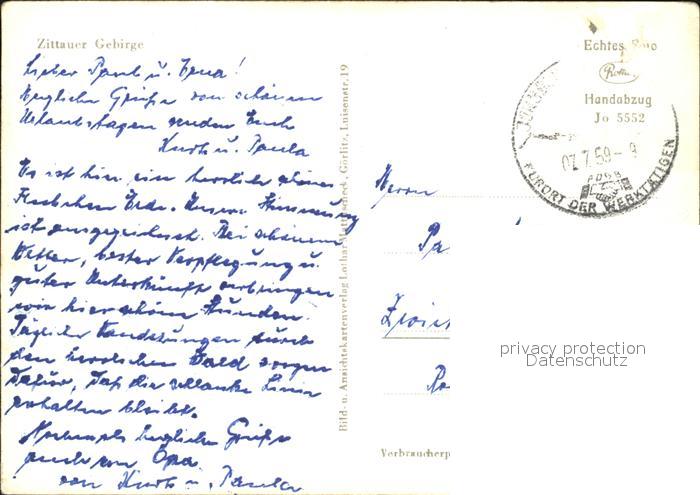 Zittauer Gebirge
Lieber Paul u. Erna!
Herzliche Grüße von schönen
Urlaubstagen senden Euch
Kurt u. Paula
Es ist hier ein herrlich schönes
Fleckchen Erde. Unsere Stimmung
ist ausgezeichnet. Bei schönem
Wetter, bester Verpflegung u.
guter Unterkunft verbringen
wir hier schöne Stunden.
Tägliche Wanderungen durch
den herrlichen Wald sorgen
dafür, daß die schlanke Linie
erhalten bleibt.
Nochmals herzliche Grüße
auch von Opa
von Kurt u. Paula
Bild- u. Ansichtskartenverlag Lothar Görlitz, Luisenstr. 19
Echtes Foto
Handabzug
Jo 5552
07.7.59-9
KURORT DER WERKTÄTIGEN
Herrn
Pa
Zwick
Verbraucherp
privacy protection
Datenschutz